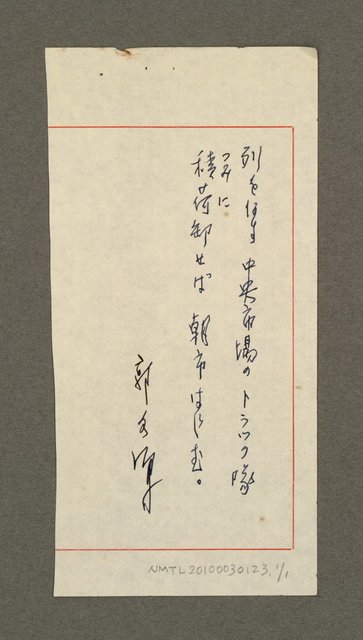 列を作す 中央市場の トラック隊
つみに
積荷卸せば 朝市はじむ。
郭水潭
NMTL20100030123, 1/1